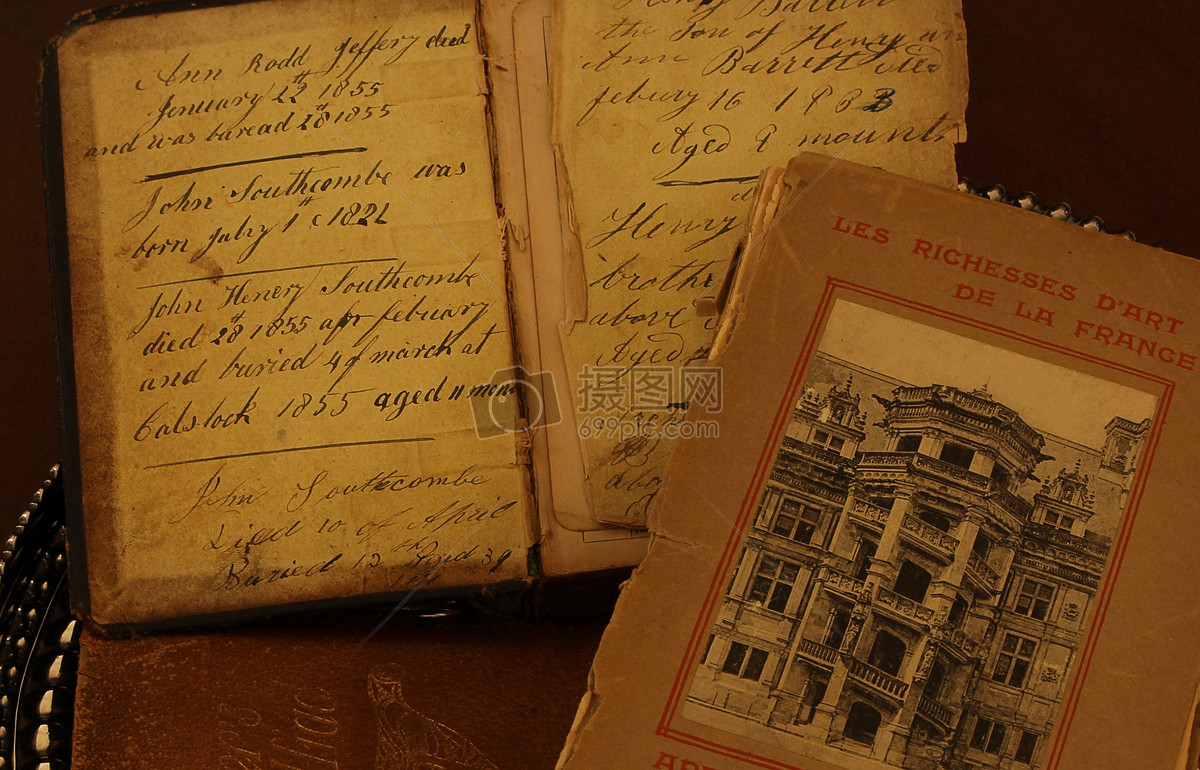 Ann Rodd Jeffery died
Jenuary 22th 1855
and was buread 28th 1855
John Southcombe was
born July 1th 1821
John Henery Southcombe
died 28th 1855 apr febuary
and buried 4 of march at
Calstock 1855 aged 11 mon
John Southcombe
Died 10 of April
Buried 13th Aged 39
Henry Barrett
the Son of Henry an
Ann Barrett died
febury 16 1863
Aged 9 mounth
Henry
brothe
above
Aged
abo
LES RICHESSES D'ART
DE LA FRANCE
摄图网
699pic.com